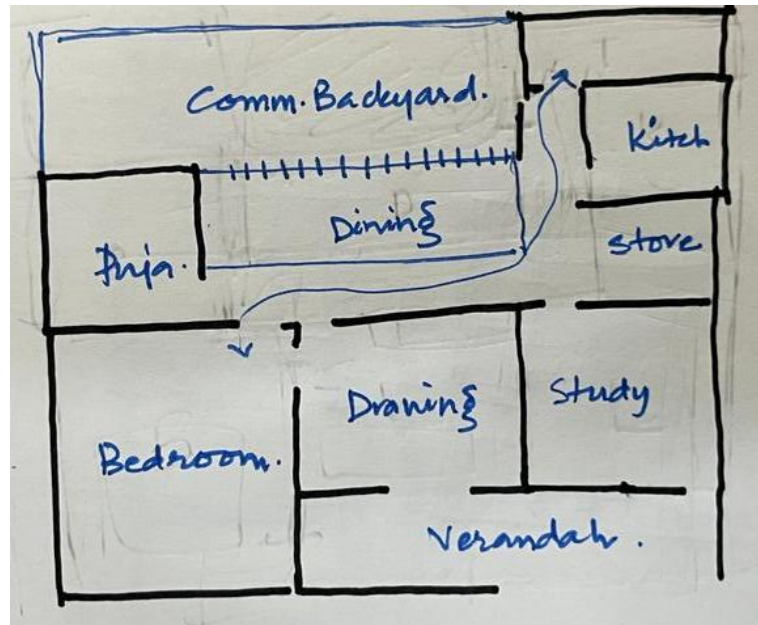 Comm. Backyard.
Kitch
Dining
Store
Puja.
Draning
Study
Bedroom.
Verandah.